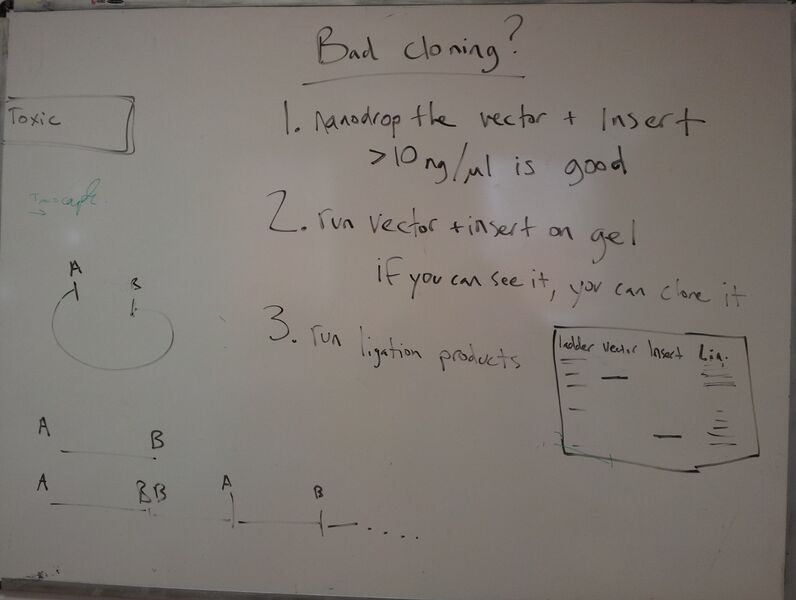 Bad cloning?
Toxic
1. nanodrop the vector + Insert
>10 ng/µl is good
2. run vector + insert on gel
if you can see it, you can clone it
3. run ligation products
ladder vector Insert Lig.
A B
A B
A BB A B ....